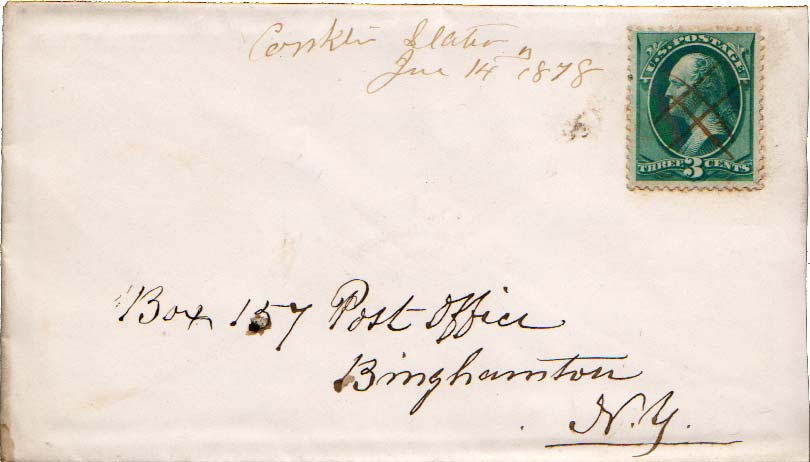 Conklin Station
Jne 14th 1878
U.S. POSTAGE
THREE 3 CENTS
Box 157 Post Office
Binghamton
N.Y.